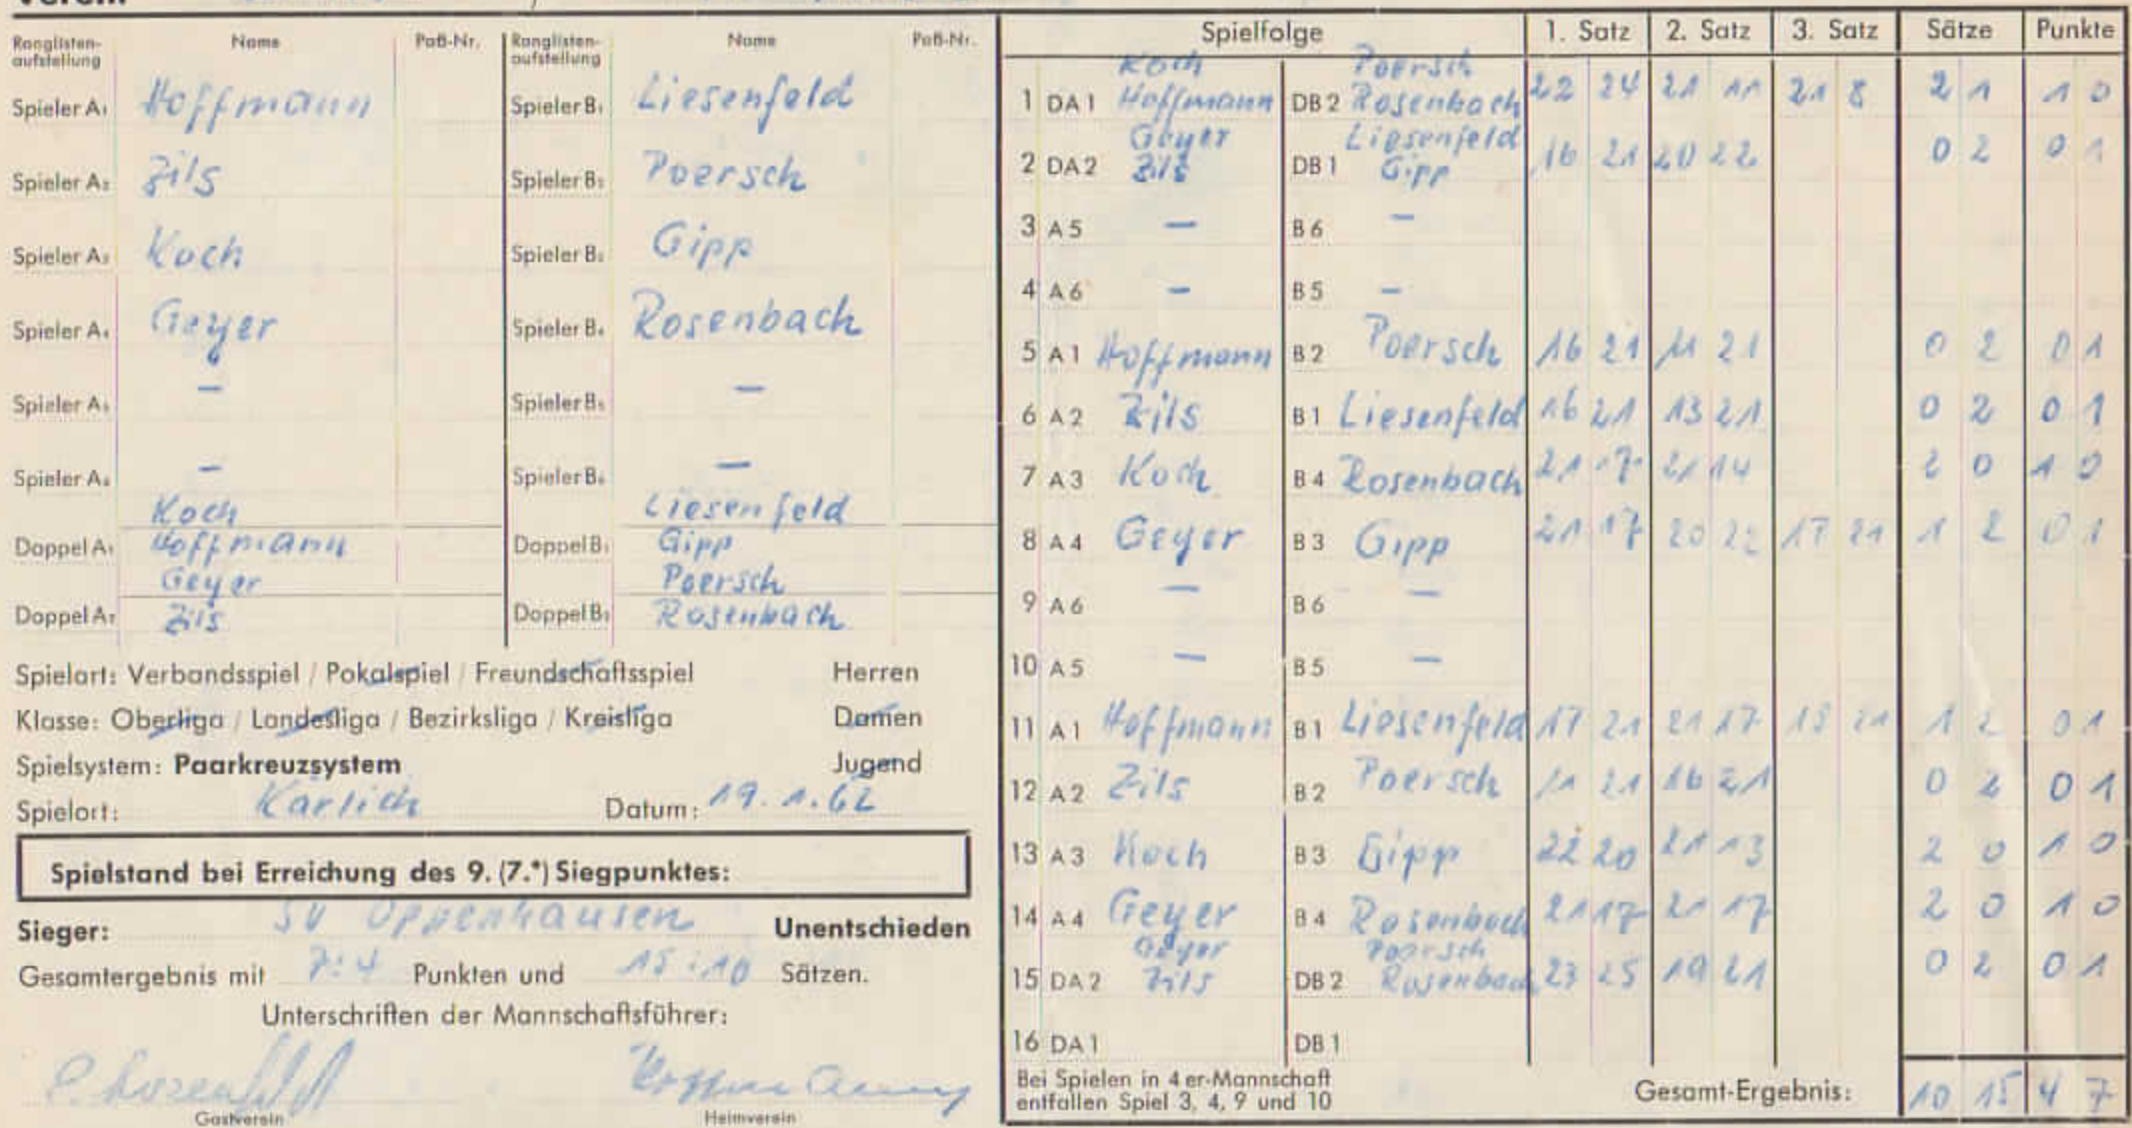 Verein
Ranglisten-aufstellung Name Paß-Nr. Ranglisten-aufstellung Name Paß-Nr.
Spieler A1 Hoffmann Spieler B1 Liesenfeld
Spieler A2 Zils Spieler B2 Poersch
Spieler A3 Koch Spieler B3 Gipp
Spieler A4 Geyer Spieler B4 Rosenbach
Spieler A5 – Spieler B5 –
Spieler A6 – Spieler B6 –
Koch Liesenfeld
Doppel A1 Hoffmann Doppel B1 Gipp
Geyer Poersch
Doppel A2 Zils Doppel B2 Rosenbach
Spielart: Verbandsspiel / Pokalspiel / Freundschaftsspiel Herren
Klasse: Oberliga / Landesliga / Bezirksliga / Kreisliga Damen
Spielsystem: Paarkreuzsystem Jugend
Spielort: Kärlich Datum: 19.1.62
Spielstand bei Erreichung des 9. (7.*) Siegpunktes:
Sieger: SV Oppenhausen Unentschieden
Gesamtergebnis mit 7:4 Punkten und 15:10 Sätzen.
Unterschriften der Mannschaftsführer:
Gastverein Heimverein
Spielfolge 1. Satz 2. Satz 3. Satz Sätze Punkte
Koch Poersch
1 DA 1 Hoffmann DB 2 Rosenbach 22 24 21 11 21 8 2 1 1 0
Geyer Liesenfeld
2 DA 2 Zils DB 1 Gipp 16 21 20 22 0 2 0 1
3 A 5 – B 6 –
4 A 6 – B 5 –
5 A 1 Hoffmann B 2 Poersch 16 21 11 21 0 2 0 1
6 A 2 Zils B 1 Liesenfeld 16 21 13 21 0 2 0 1
7 A 3 Koch B 4 Rosenbach 21 17 21 14 2 0 1 0
8 A 4 Geyer B 3 Gipp 21 17 20 22 17 21 1 2 0 1
9 A 6 – B 6 –
10 A 5 – B 5 –
11 A 1 Hoffmann B 1 Liesenfeld 17 21 21 17 21 1 2 0 1
12 A 2 Zils B 2 Poersch 21 16 21 0 2 0 1
13 A 3 Koch B 3 Gipp 22 20 21 13 2 0 1 0
14 A 4 Geyer B 4 Rosenbach 21 17 21 17 2 0 1 0
Geyer Poersch
15 DA 2 Zils DB 2 Rosenbach 23 25 19 21 0 2 0 1
16 DA 1 DB 1
Bei Spielen in 4 er-Mannschaft
entfallen Spiel 3, 4, 9 und 10
Gesamt-Ergebnis: 10 15 4 7